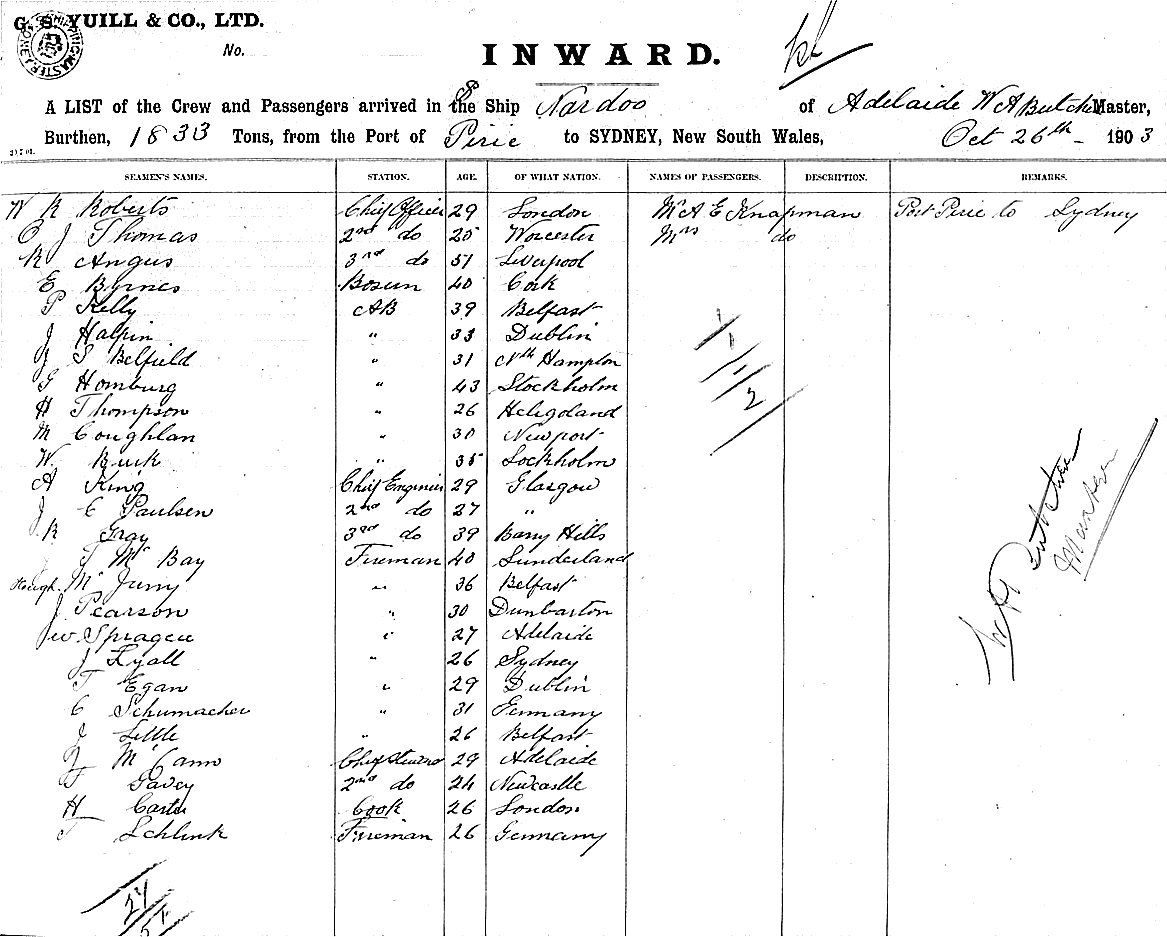 G. S. YUILL & CO., LTD.
SHIPPING MASTER
No.
INWARD.
A LIST of the Crew and Passengers arrived in the SS Ship Nardoo of Adelaide W A Butcher Master,
Burthen, 1833 Tons, from the Port of Pirie to SYDNEY, New South Wales, Oct 26th 1903
SEAMEN'S NAMES. STATION. AGE. OF WHAT NATION. NAMES OF PASSENGERS. DESCRIPTION. REMARKS.
W R Roberts Chief Officer 29 London Mr A E Knapman Port Pirie to Sydney
C J Thomas 2nd do 25 Worcester Mrs do
R Angus 3rd do 51 Liverpool
E Byrnes Bosun 40 Cork
P Kelly AB 39 Belfast
J Halpin " 33 Dublin
J S Belfield " 31 Nth Hampton
G Homburg " 43 Stockholm
H Thompson " 26 Heligoland
M Coughlan " 30 Newport
W. Burk " 35 Sockholm
A King Chief Engineer 29 Glasgow
J C Paulsen 2nd do 27 "
R Gray 3rd do 39 Barry Hills
T Mc Bay Fireman 40 Sunderland
Hough. Mc Jurry " 36 Belfast
J Pearson " 30 Dunbarton
J W. Sprague " 27 Adelaide
J Lyall " 26 Sydney
T Egan " 29 Dublin
C Schumacher " 31 Germany
J Little " 26 Belfast
J McCann Chief Steward 29 Adelaide
T Davey 2nd do 24 Newcastle
H Carter Cook 26 London
T Schlink Fireman 26 Germany
1
1
2
W A Butcher
Master
27